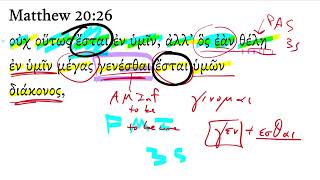 Matthew 20:26
οὐχ οὕτως ἔσται ἐν ὑμῖν, ἀλλ' ὃς ἐὰν θέλῃ
PAS
3S
ἐν ὑμῖν μέγας γενέσθαι ἔσται ὑμῶν
διάκονος,
AMInf
to be
to be come
γίνομαι
FMI
3S
γεν + εσθαι